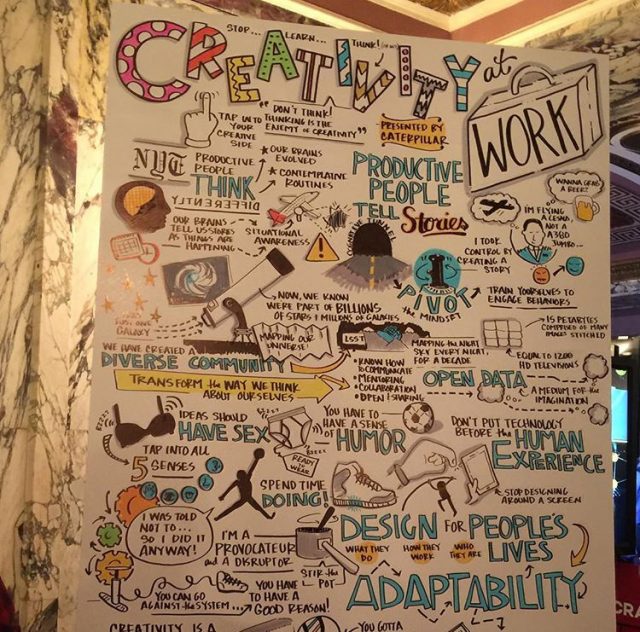 STOP... LEARN... THINK!
CREATIVITY at WORK
TAP INTO YOUR CREATIVE SIDE
"DON'T THINK!
THINKING IS THE
ENEMY OF CREATIVITY"
PRESENTED BY
CATERPILLAR
NYT
PRODUCTIVE
PEOPLE
THINK
DIFFERENTLY
★ OUR BRAINS
EVOLVED
★ CONTEMPLATIVE
ROUTINES
PRODUCTIVE
PEOPLE
TELL Stories
WANNA GRAB
A BEER?
I'M FLYING
A CESNA,
NOT A
A380
JUMBO...
OUR BRAINS
TELL US STORIES
AS THINGS ARE
HAPPENING
SITUATIONAL
AWARENESS
I TOOK
CONTROL BY
CREATING A
STORY
PIVOT
the MINDSET
TRAIN YOURSELVES TO
ENGAGE BEHAVIORS
JUST ONE
GALAXY
NOW, WE KNOW
WE'RE PART OF BILLIONS
OF STARS & MILLIONS OF GALAXIES
MAPPING OUR
UNIVERSE!
LSST
MAPPING THE NIGHT
SKY EVERY NIGHT,
FOR A DECADE
15 PETABYTES
COMPRISED OF MANY
IMAGES STITCHED
EQUAL TO 1200
HD TELEVISIONS
WE HAVE CREATED A
DIVERSE COMMUNITY
• KNOW HOW
TO COMMUNICATE
• MENTORING
• COLLABORATION
• OPEN & SHARING
OPEN DATA
A MEDIUM FOR the
IMAGINATION
TRANSFORM the WAY WE THINK
ABOUT OURSELVES
IDEAS SHOULD
HAVE SEX
READY
to WEAR
YOU HAVE TO
HAVE A SENSE
of HUMOR
DON'T PUT TECHNOLOGY
BEFORE the HUMAN
EXPERIENCE
TAP INTO ALL
5 SENSES
SPEND TIME
DOING!
STOP DESIGNING
AROUND A SCREEN
I WAS TOLD
NOT TO...
SO I DID IT
ANYWAY!
I'M A
PROVOCATEUR
and A DISRUPTOR
STIR the
POT
DESIGN FOR PEOPLE'S
LIVES
WHAT THEY
DO
HOW THEY
WORK
WHO
THEY ARE
YOU CAN GO
AGAINST the SYSTEM...
YOU HAVE
TO HAVE A
GOOD REASON!
ADAPTABILITY
CREATIVITY IS A
YOU GOTTA
CRA